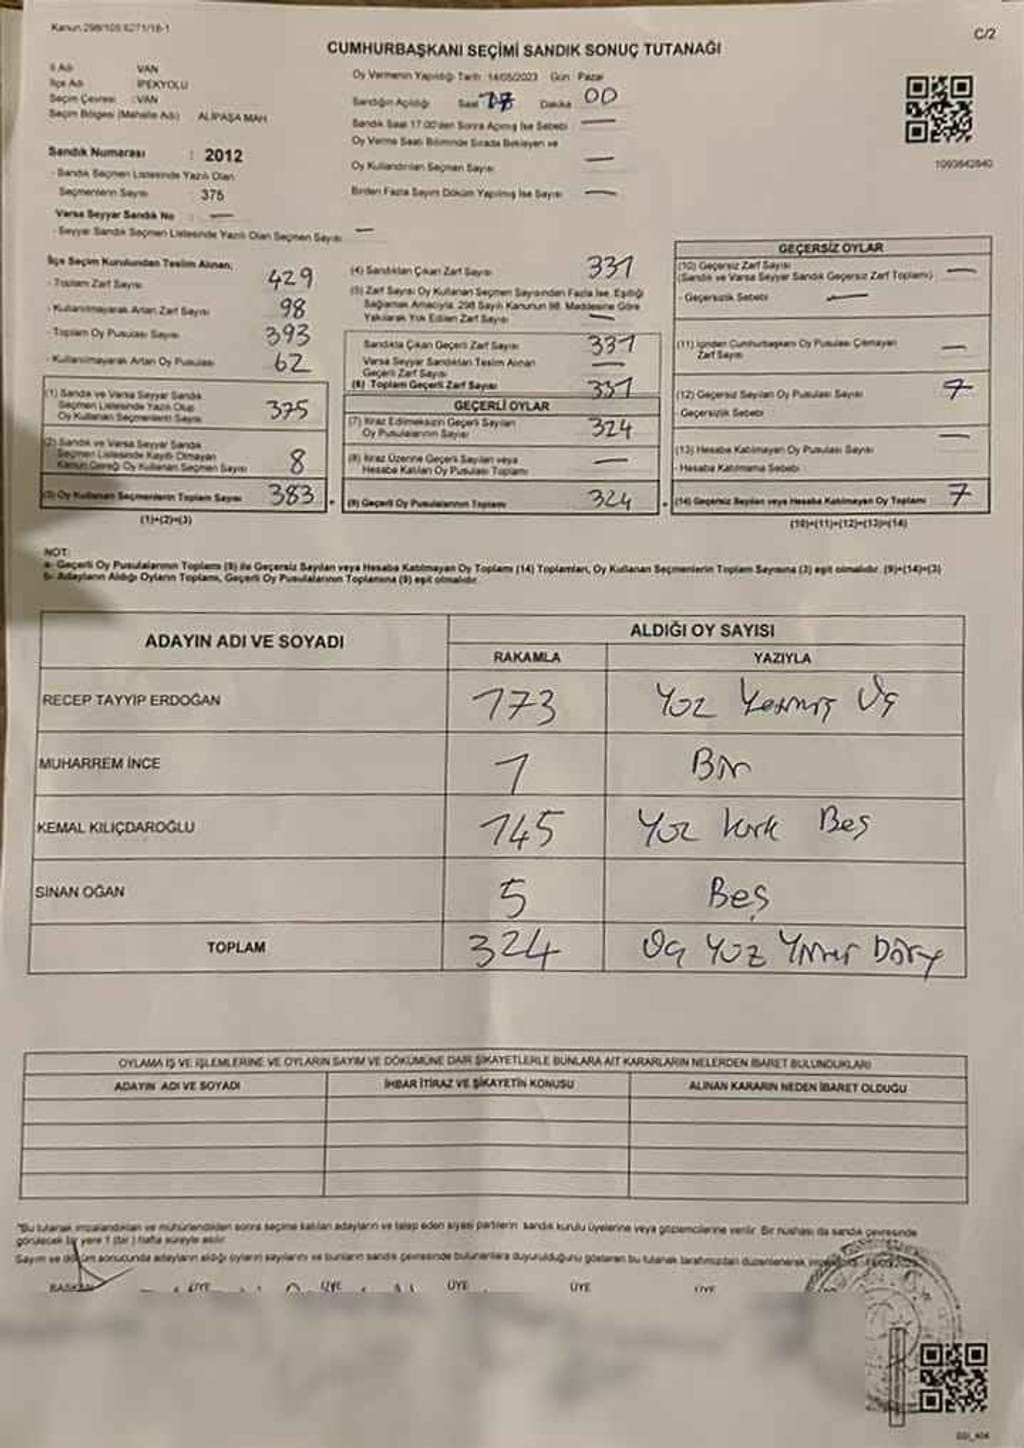 Kanun 298/105 6271/18-1
C/2
CUMHURBAŞKANI SEÇİMİ SANDIK SONUÇ TUTANAĞI
İl Adı VAN
İlçe Adı İPEKYOLU
Seçim Çevresi : VAN
Seçim Bölgesi (Mahalle Adı) ALİPAŞA MAH
Sandık Numarası : 2012
- Sandık Seçmen Listesinde Yazılı Olan
Seçmenlerin Sayısı 375
Varsa Seyyar Sandık No : —
- Seyyar Sandık Seçmen Listesinde Yazılı Olan Seçmen Sayısı —
Oy Vermenin Yapıldığı Tarih : 14/05/2023 Gün : Pazar
Sandığın Açıldığı Saat Dakika 00
Sandık Saat 17:00'den Sonra Açılmış İse Sebebi —
Oy Verme Saati Bitiminde Sırada Bekleyen ve
Oy Kullandırılan Seçmen Sayısı —
Birden Fazla Sayım Döküm Yapılmış İse Sayısı —
1093642840
İlçe Seçim Kurulundan Teslim Alınan;
- Toplam Zarf Sayısı 429
- Kullanılmayarak Artan Zarf Sayısı 98
- Toplam Oy Pusulası Sayısı 393
- Kullanılmayarak Artan Oy Pusulası 62
(1) Sandık ve Varsa Seyyar Sandık
Seçmen Listesinde Yazılı Olup
Oy Kullanan Seçmenlerin Sayısı 375
(2) Sandık ve Varsa Seyyar Sandık
Seçmen Listesinde Kayıtlı Olmayan
Kanun Gereği Oy Kullanan Seçmen Sayısı 8
(3) Oy Kullanan Seçmenlerin Toplam Sayısı 383
(1)+(2)=(3)
(4) Sandıktan Çıkan Zarf Sayısı 331
(5) Zarf Sayısı Oy Kullanan Seçmen Sayısından Fazla İse, Eşitliği
Sağlamak Amacıyla, 298 Sayılı Kanunun 98. Maddesine Göre
Yakılarak Yok Edilen Zarf Sayısı —
Sandıkta Çıkan Geçerli Zarf Sayısı 331
Varsa Seyyar Sandıktan Teslim Alınan
Geçerli Zarf Sayısı —
(6) Toplam Geçerli Zarf Sayısı 331
GEÇERLİ OYLAR
(7) İtiraz Edilmeksizin Geçerli Sayılan
Oy Pusulalarının Sayısı 324
(8) İtiraz Üzerine Geçerli Sayılan veya
Hesaba Katılan Oy Pusulası Toplamı —
(9) Geçerli Oy Pusulalarının Toplamı 324
GEÇERSİZ OYLAR
(10) Geçersiz Zarf Sayısı
(Sandık ve Varsa Seyyar Sandık Geçersiz Zarf Toplamı) —
- Geçersizlik Sebebi —
(11) İçinden Cumhurbaşkanı Oy Pusulası Çıkmayan
Zarf Sayısı —
(12) Geçersiz Sayılan Oy Pusulası Sayısı 7
- Geçersizlik Sebebi
(13) Hesaba Katılmayan Oy Pusulası Sayısı —
- Hesaba Katılmama Sebebi
(14) Geçersiz Sayılan veya Hesaba Katılmayan Oy Toplamı 7
(10)+(11)+(12)+(13)=(14)
NOT:
a- Geçerli Oy Pusulalarının Toplamı (9) ile Geçersiz Sayılan veya Hesaba Katılmayan Oy Toplamı (14) Toplamları, Oy Kullanan Seçmenlerin Toplam Sayısına (3) eşit olmalıdır. (9)+(14)=(3)
b- Adayların Aldığı Oyların Toplamı, Geçerli Oy Pusulalarının Toplamına (9) eşit olmalıdır.
ADAYIN ADI VE SOYADI
ALDIĞI OY SAYISI
RAKAMLA YAZIYLA
RECEP TAYYİP ERDOĞAN 173 Yüz Yetmiş Üç
MUHARREM İNCE 1 Bir
KEMAL KILIÇDAROĞLU 145 Yüz Kırk Beş
SİNAN OĞAN 5 Beş
TOPLAM 324 Üç Yüz Yirmi Dört
OYLAMA İŞ VE İŞLEMLERİNE VE OYLARIN SAYIM VE DÖKÜMÜNE DAİR ŞİKAYETLERLE BUNLARA AİT KARARLARIN NELERDEN İBARET BULUNDUKLARI
ADAYIN ADI VE SOYADI İHBAR İTİRAZ VE ŞİKAYETİN KONUSU ALINAN KARARIN NEDEN İBARET OLDUĞU
"Bu tutanak imzalandıktan ve mühürlendikten sonra seçime katılan adayların ve talep eden siyasi partilerin sandık kurulu üyelerine veya gözlemcilerine verilir. Bir nüshası da sandık çevresinde
görülecek bir yere 1 (bir) hafta süreyle asılır.
Sayım ve döküm sonucunda adayların aldığı oyların sayılarını ve bunların sandık çevresinde bulunanlara duyurulduğunu gösteren bu tutanak tarafımızdan düzenlenerek
BAŞKAN ÜYE ÜYE ÜYE ÜYE ÜYE